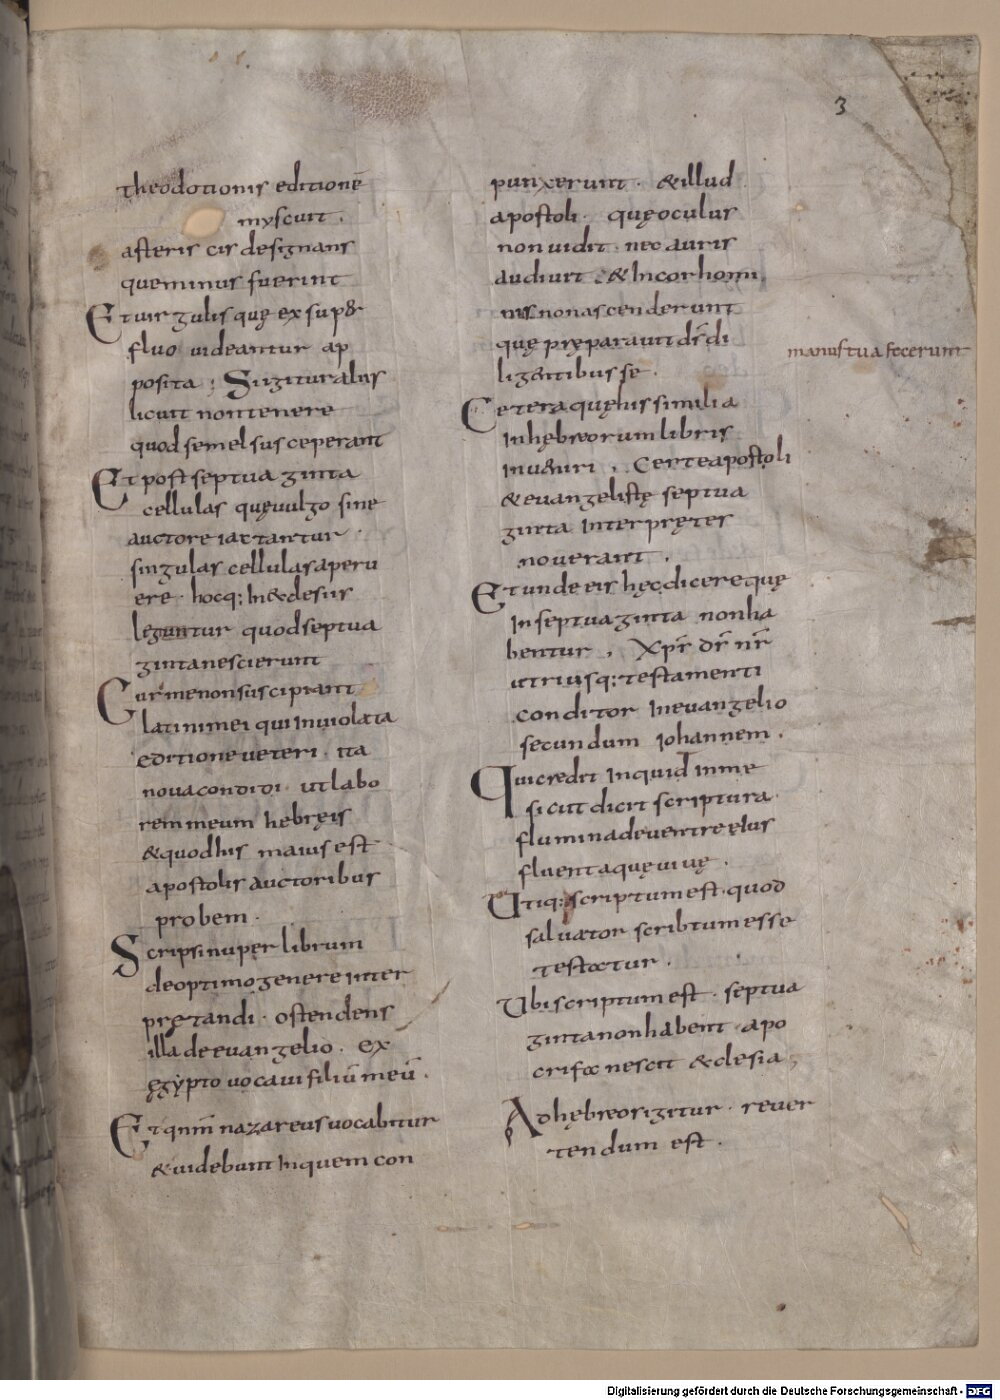 3
theodotionis editionē
myscuit .
asteris cis designans
queminus fuerint
Et uirgulis quę ex sup&r
fluo uideantur ap
posita ; Sigitur aliis
licuit non tenere
quod semel susceperant
Et post septuaginta
cellulas quę vulgo sine
auctore iactantur
singulas cellulas aperu
ere · hocq; In&desiis
leguntur quod septua
ginta nescierunt
Cur me non suscipiant
latini mei qui Inuiolata
editione veteri · ita
nova condidi · ut labo
rem meum hebręis
&quod his maius est
apostolis auctoribus
probem ·
Scripsi nuper librum
de optimo genere inter
prętandi · ostendens
illa de evangelio · ex
ęgypto vocavi filiū meū .
Et qnm̄ nazareus vocabitur
&uidebunt In quem con
punxerunt · &illud
apostoli · quę oculus
non uidit · nec auris
audiuit · &In cor homi
nis non ascenderunt
quę pręparauit d̄s di
lig&ntibus se .
Cetera quę his similia
In hębreorum libris
Inu&niri . Certe apostoli
&evangelistę septua
ginta Interprętes
noverant .
Et unde eis hęc dicere quę
In septuaginta non ha
bentur . Xp̄s d̄s n̄r
utriusq; testamenti
conditor In evangelio
secundum Iohannem .
Qui credit Inquid In me
sicut dicit scriptura
flumina de ventre eius
fluent aquę vivę .
Utiq; scriptum est · quod
salvator scribtum esse
testatur .
Ubi scriptum est · septua
ginta non habent · apo
crifa nescit &clesia ;
Ad hębreos igitur · rever
tendum est .
manus tua fecerunt
Digitalisierung gefördert durch die Deutsche Forschungsgemeinschaft - DFG